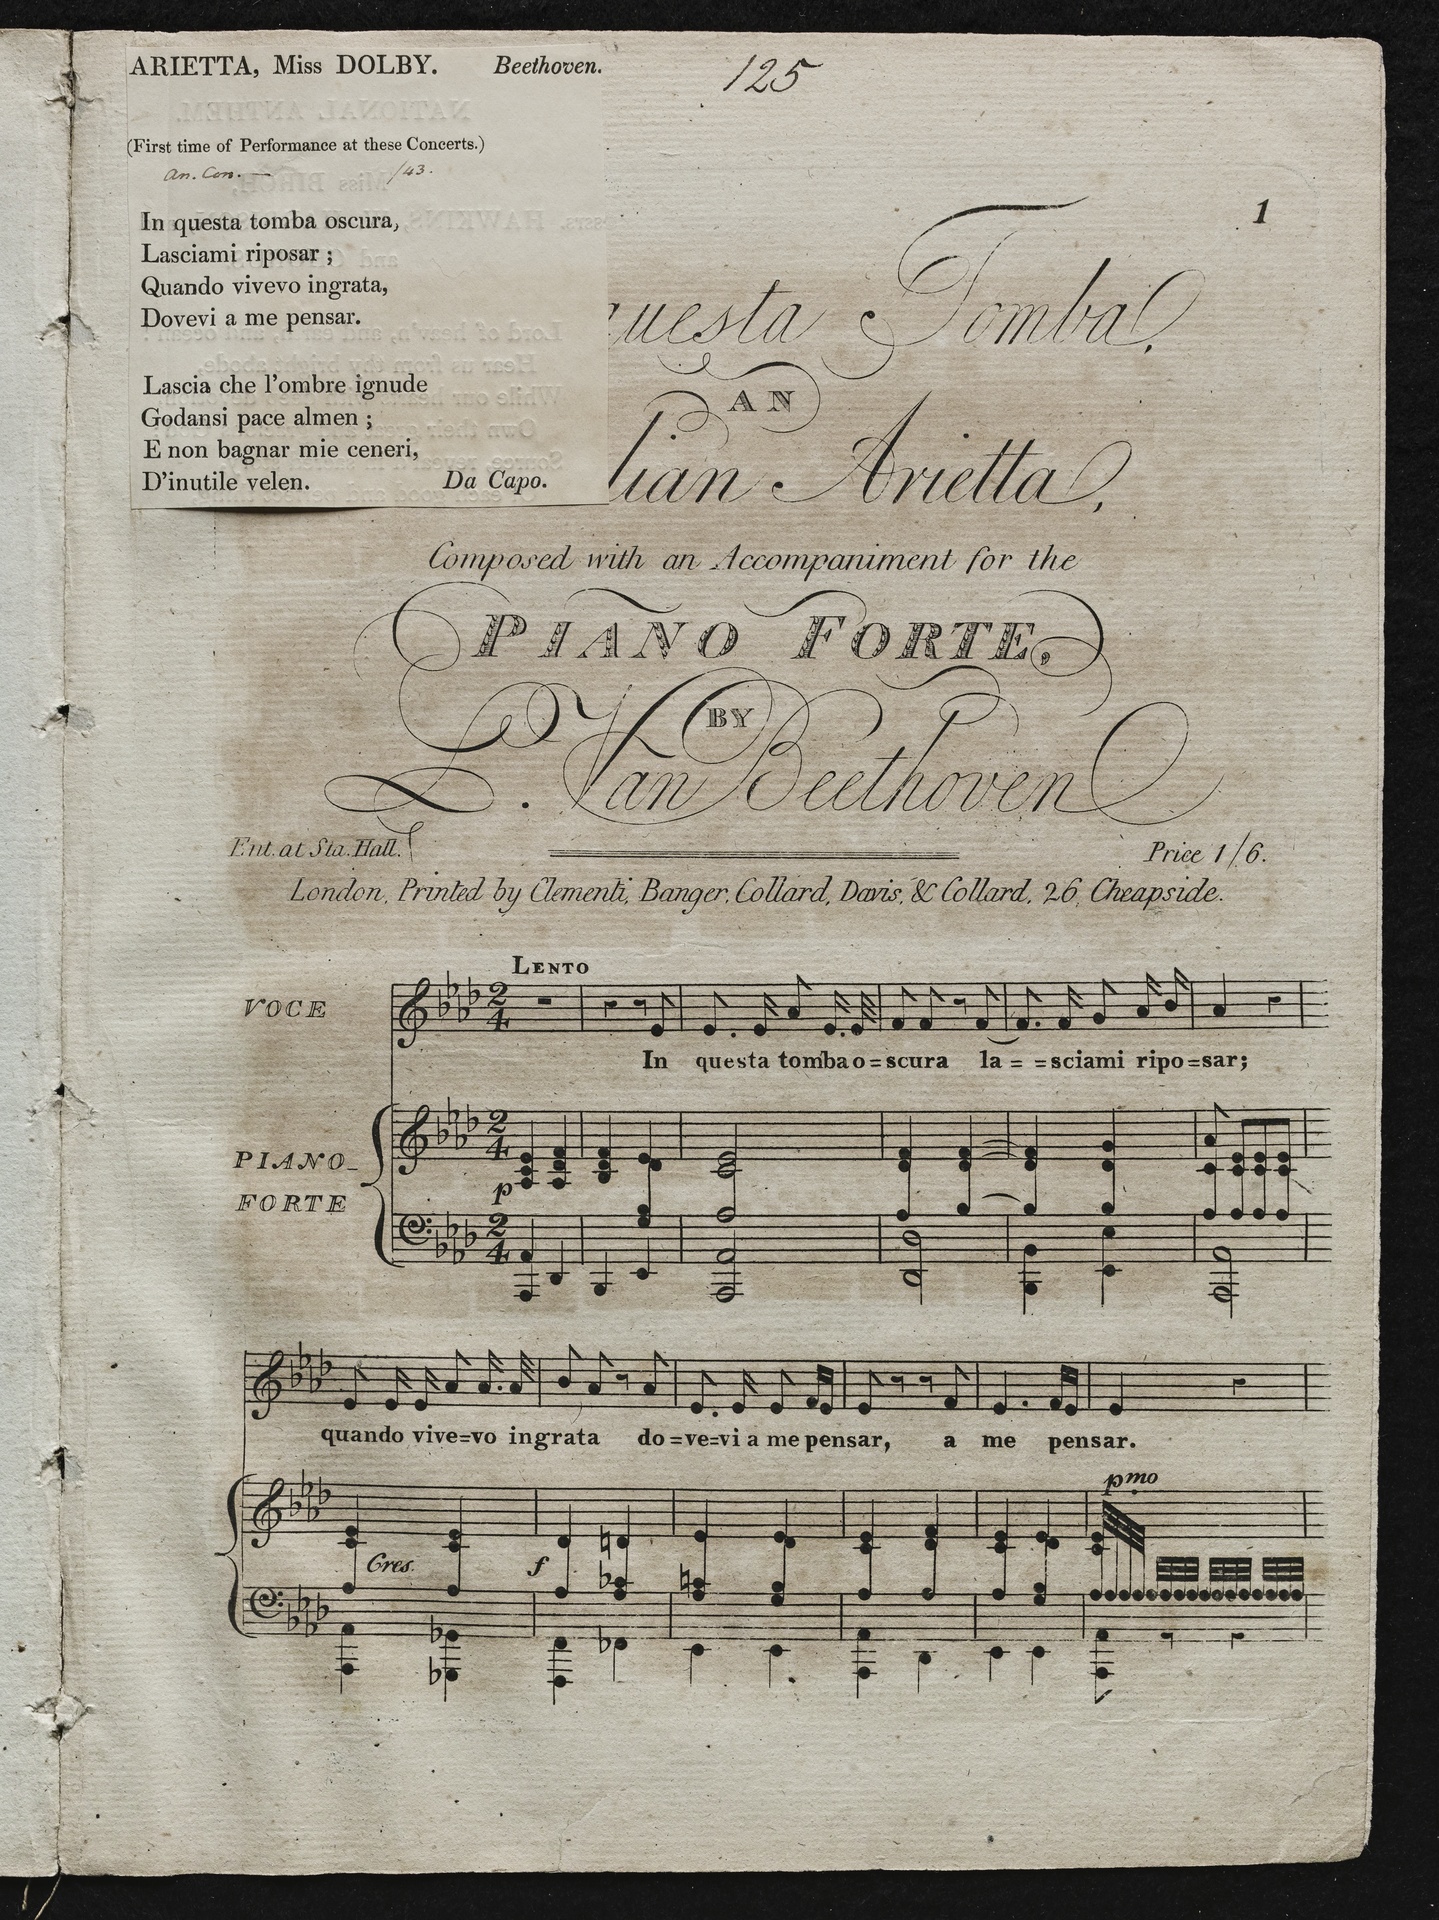 ARIETTA, Miss DOLBY. Beethoven.
(First time of Performance at these Concerts.)
An. Con. — /43.
In questa tomba oscura,
Lasciami riposar ;
Quando vivevo ingrata,
Dovevi a me pensar.
Lascia che l'ombre ignude
Godansi pace almen ;
E non bagnar mie ceneri,
D'inutile velen. Da Capo.
125
1
questa Tomba,
AN
lian Arietta,
Composed with an Accompaniment for the
PIANO FORTE,
BY
L. Van Beethoven
Ent. at Sta. Hall. Price 1/6.
London, Printed by Clementi, Banger, Collard, Davis, & Collard, 26, Cheapside.
LENTO
VOCE
2 4
In questa tomba o=scura la= =sciami ripo=sar;
PIANO_
FORTE
2 4
p
2 4
quando vive=vo ingrata do=ve=vi a me pensar, a me pensar.
pmo
Cres. f